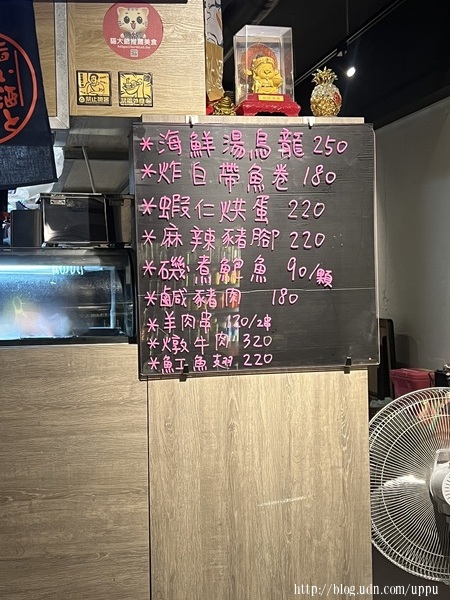 貓大爺推薦美食
*海鮮湯烏龍 250
*炸白帶魚卷 180
*蝦仁烘蛋 220
*麻辣豬腳 220
*磯煮鮑魚 90/顆
*鹹豬肉 180
*羊肉串 120/2串
*燉牛肉 320
*魟魚翅 220
http://blog.udn.com/uppu